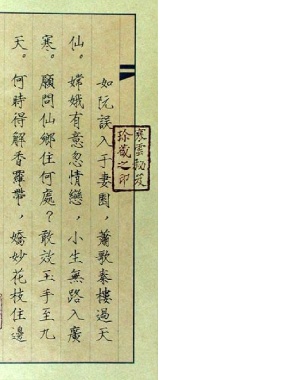 如阮誤入于妻園，蕭歌秦樓過天
仙。嫦娥有意忽情戀，小生無路入廣
寒。願問仙鄉住何處？敢效玉手至九
天。何時得解香羅帶，嬌妙花枝住邊
寒雲秘笈
珍藏之印